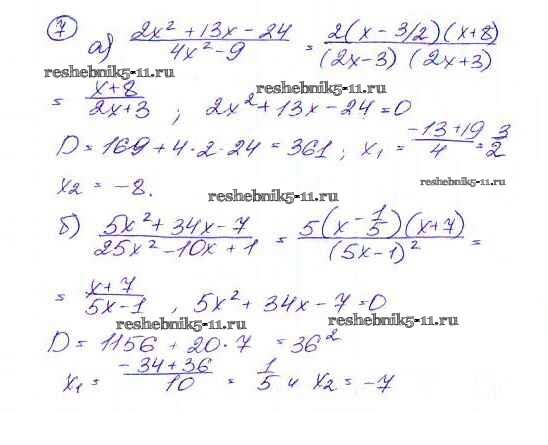 7
а) (2x² + 13x - 24)/(4x² - 9) = 2(x - 3/2)(x+8)/((2x-3) (2x+3))
reshebnik5-11.ru reshebnik5-11.ru
= (x+8)/(2x+3) ; 2x² + 13x - 24 = 0
D = 169 + 4·2·24 = 361; x₁ = (-13+19)/4 = 3/2
x₂ = -8. reshebnik5-11.ru reshebnik5-11.ru
б) (5x² + 34x - 7)/(25x² - 10x + 1) = 5(x - 1/5)(x+7)/(5x-1)² =
= (x+7)/(5x-1) , 5x² + 34x - 7 = 0
reshebnik5-11.ru reshebnik5-11.ru
D = 1156 + 20·7 = 36²
x₁ = (-34+36)/10 = 1/5 и x₂ = -7